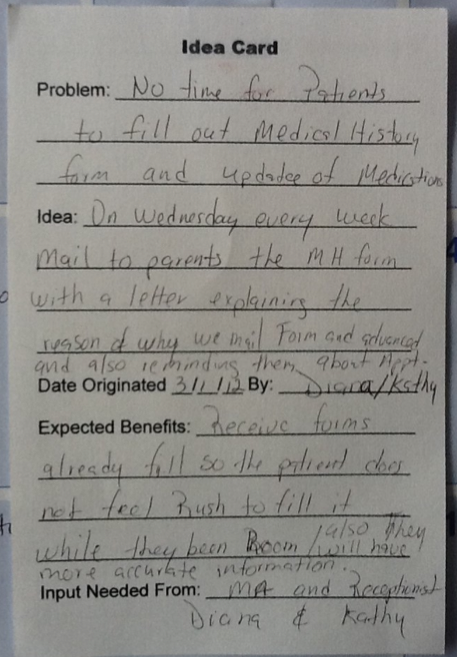 Idea Card
Problem: No time for Patients
to fill out Medical History
form and updadee of Medications
Idea: On Wednesday every week
Mail to parents the MH form
with a letter explaining the
reason of why we mail Form and advanced
and also reminding them about Appt.
Date Originated 3/1/12 By: Diana/Kathy
Expected Benefits: Receive forms
already fill so the patient does
not feel Rush to fill it
while they been Room / also They
will have
more accurate information.
Input Needed From: MA and Receptionist
Diana & Kathy